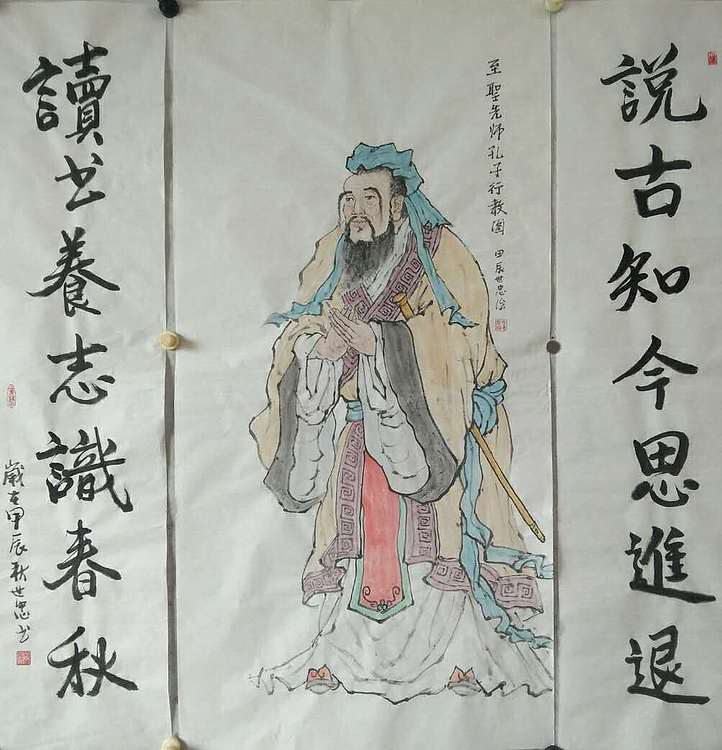 説古知今思進退
至聖先师孔子行教图
甲辰世忠绘
讀书養志識春秋
歲在甲辰秋世忠书